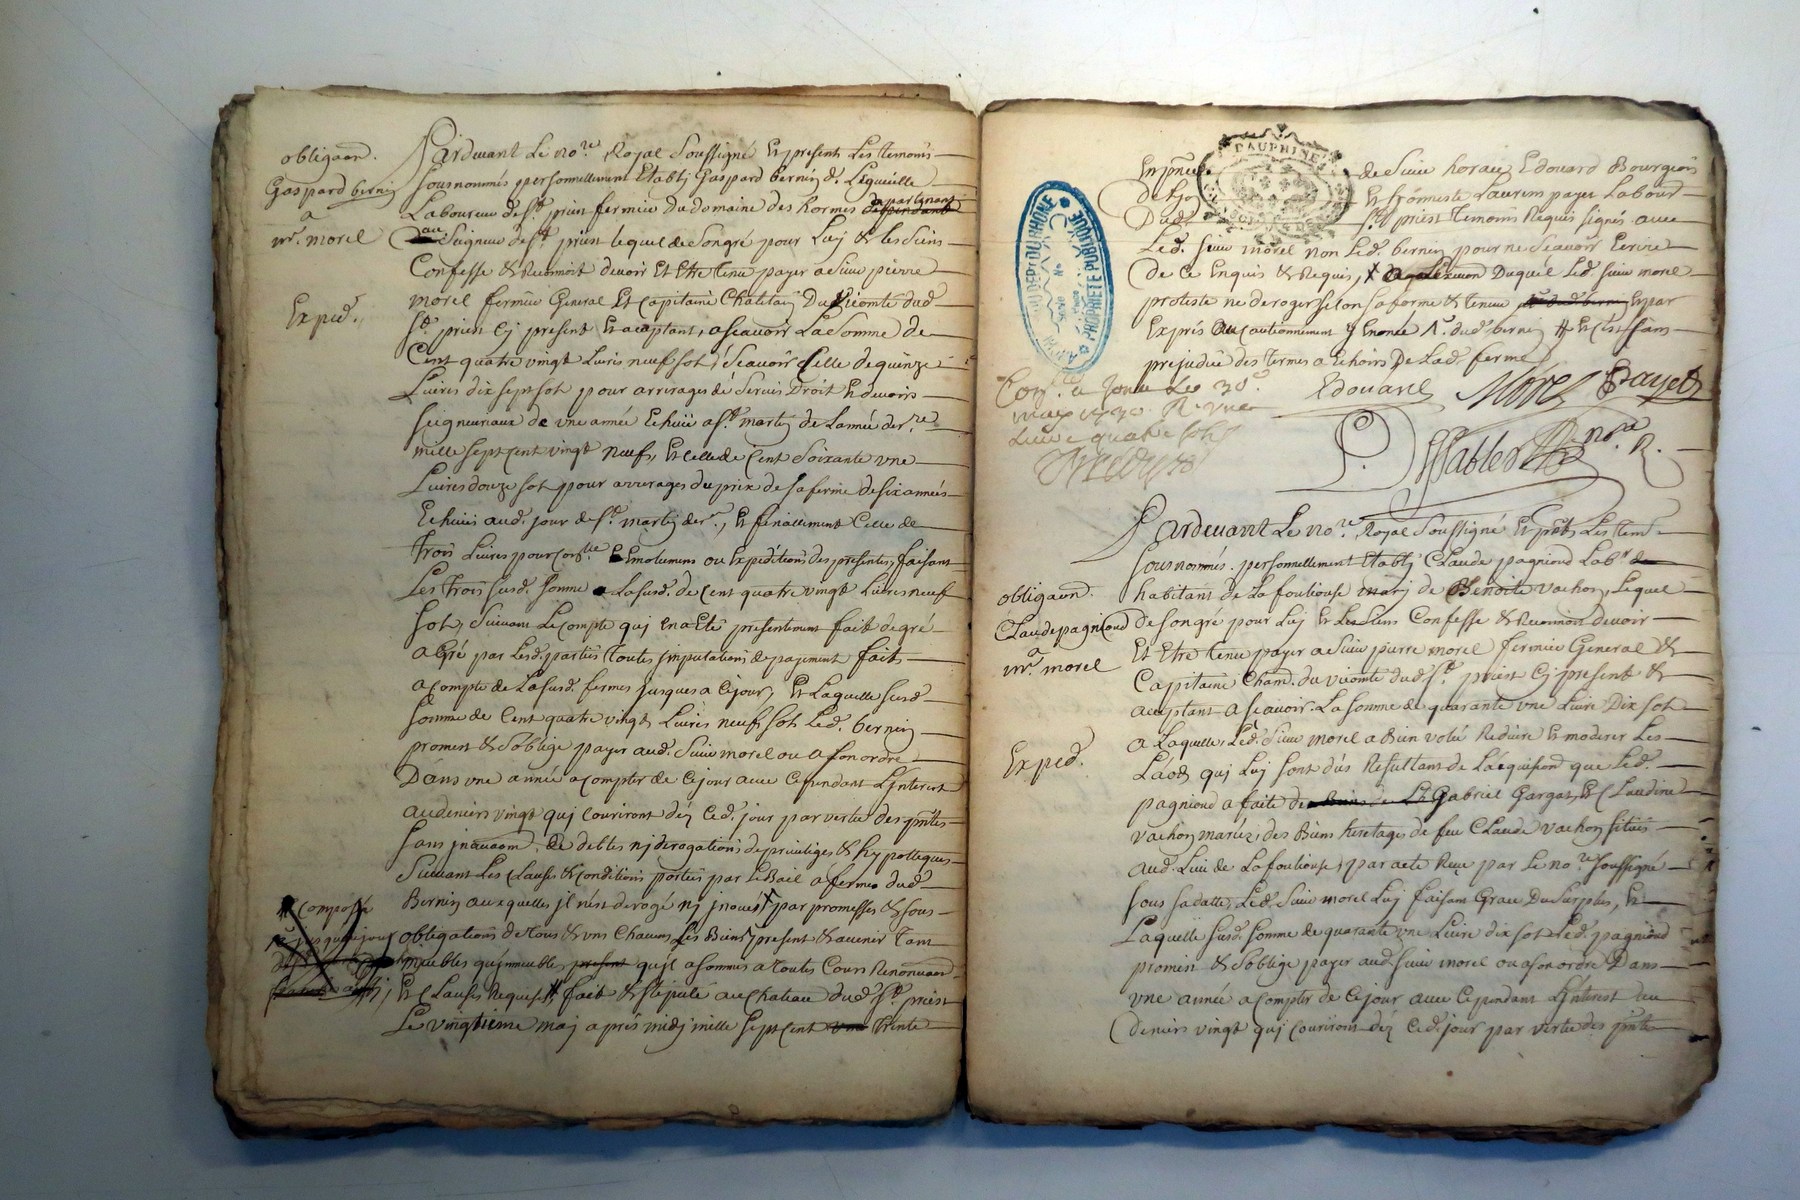 obligaon.
Gaspard bernin
a
mr. morel
Exped.
Pardevant Le nore. Royal Soussigné Et presents Les temoins
sousnommés personnellement Etably Gaspard bernin dt. L'Eguille
Laboureur de st. priest fermier du domaine des hormes apartenant
au Seigneur de st. priest lequel de Son gré pour Luy & les Siens
Confesse & Reconnoit devoir Et Etre tenu payer a Sieur pierre
morel fermier General Et Capitaine Chatelain Du Vicomté dud.
st. priest Cy present Et aceptant, a Scavoir La Somme de
Cent quatre vingt Livres neuf sol, Scavoir Celle de quinze
Livres dix sept sol pour arrirages de Servis Droit Et devoirs
seigneuriaux de une année Echüe a st. martin de L'année derre.
mille sept cent vingt neuf, Et celle de Cent Soixante une
Livres douze sol pour arrerages du prix de sa ferme de six années
Echües aud. jour de st. martin der., Et finallement Celle de
trois Livres pour Emolumens ou Expeditions des presentes, faisant
Les trois susd. somme La susd. de Cent quatre vingt Livres neuf
sol, Suivant Le compte quj En a Eté presentement fait de gré
a Gré par Lesd. parties toutes jmputations de payement faits
a compte de La susd. fermes jusques a Cejour, Et Laquelle susd.
somme de Cent quatre vingt Livres neuf sol Led. bernin
promet & S'oblige payer aud. Sieur morel ou a son ordre
Dans une année a compter de Cejour avec Cependant L'jnterest
au deniers vingt quj Couriront déz Ced. jour par vertu des pntes
sans jnnovaon. de debtes nj derogations de privileges & hypotteques
Suivant Les Clauses & Conditions portées par Le Bail a ferme dud.
Bernin auxquelles jl n'est derogé nj jnnové par promesses & sous
obligations de tous & uns Chacuns Ses Biens present & avenir tant
meubles qu'jmmeubles, present qu'jl a soumis a toutes Cours Renonciaon.
Et Clauses Requises fait & stipulé au Chateau dud. st. priest
Le vingtieme maj aprés midj mille sept cent une trente
jusqu'a ce jour
En pnce.
de Sieur horais Edouard Bourgeois
de Lyo
Et honneste Laurens payet Labour
Dud.
st. priest temoins Requis signés avec
Led. Sieur morel non Led. bernin pour ne Scavoir Ecrire
de Ce Enquis & Requis, Duquel Led. Sieur morel
proteste ne deroger selon sa forme & teneur Et par
Exprés au Cautionnement y Enoncé dud. bernin Et C'est sans
prejudice des termes a Echoirs De Lad. ferme
Edouard Morel Payet
nore. R.
may 1730. R. une
Livre quatre sols
obligaon.
Claude pagnioud
a
mr. morel
Exped.
Pardevant Le nore. Royal Soussigné Et pnts Les tem.
sousnommés. personnellement Etably Claude pagnioud Labr. de
habitant de La fouliouse mary de Benoite vachon, Lequel
de Son gré pour Luj Et Les Siens Confesse & Reconnoit devoir
Et Etre tenu payer a Sieur pierre morel fermier General &
Capitaine Chan. du vicomté dud. st. priest Cj present &
aceptant a Scavoir La somme de quarante une Livre Dix sol
a Laquelle, Led. Sieur morel a Bien volu Reduire Et moderer Les
Laods quj Luj sont dus Resultant de L'acquision que Led.
pagnioud a faite de Biens de Gabriel Gargat, Et Claudine
vachon mariez, des Biens heretages de feu Claude vachon situés
aud. Lieu de La fouliouse, par acte Reçu par Le nore. soussigné
sous sa datte, Led. Sieur morel Luj faisant Grace Du Surplus, Et
Laquelle susd. somme de quarante une Livre dix sol Led. pagnioud
promet & S'oblige payer aud. Sieur morel ou a son ordre Dans
une année a compter de Cejour avec Cependant L'jnterest au
deniers vingt quj Couriront déz Ced. jour par vertu des pntes
DAUPHINE
DU DEPT DU RHONE
PROPRIETE PUBLIQUE